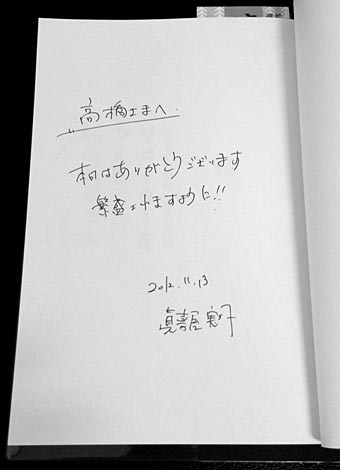 高橋さまへ
本日はありがとうございます
繁盛されますように!!
2012.11.13
眞喜屋 実子